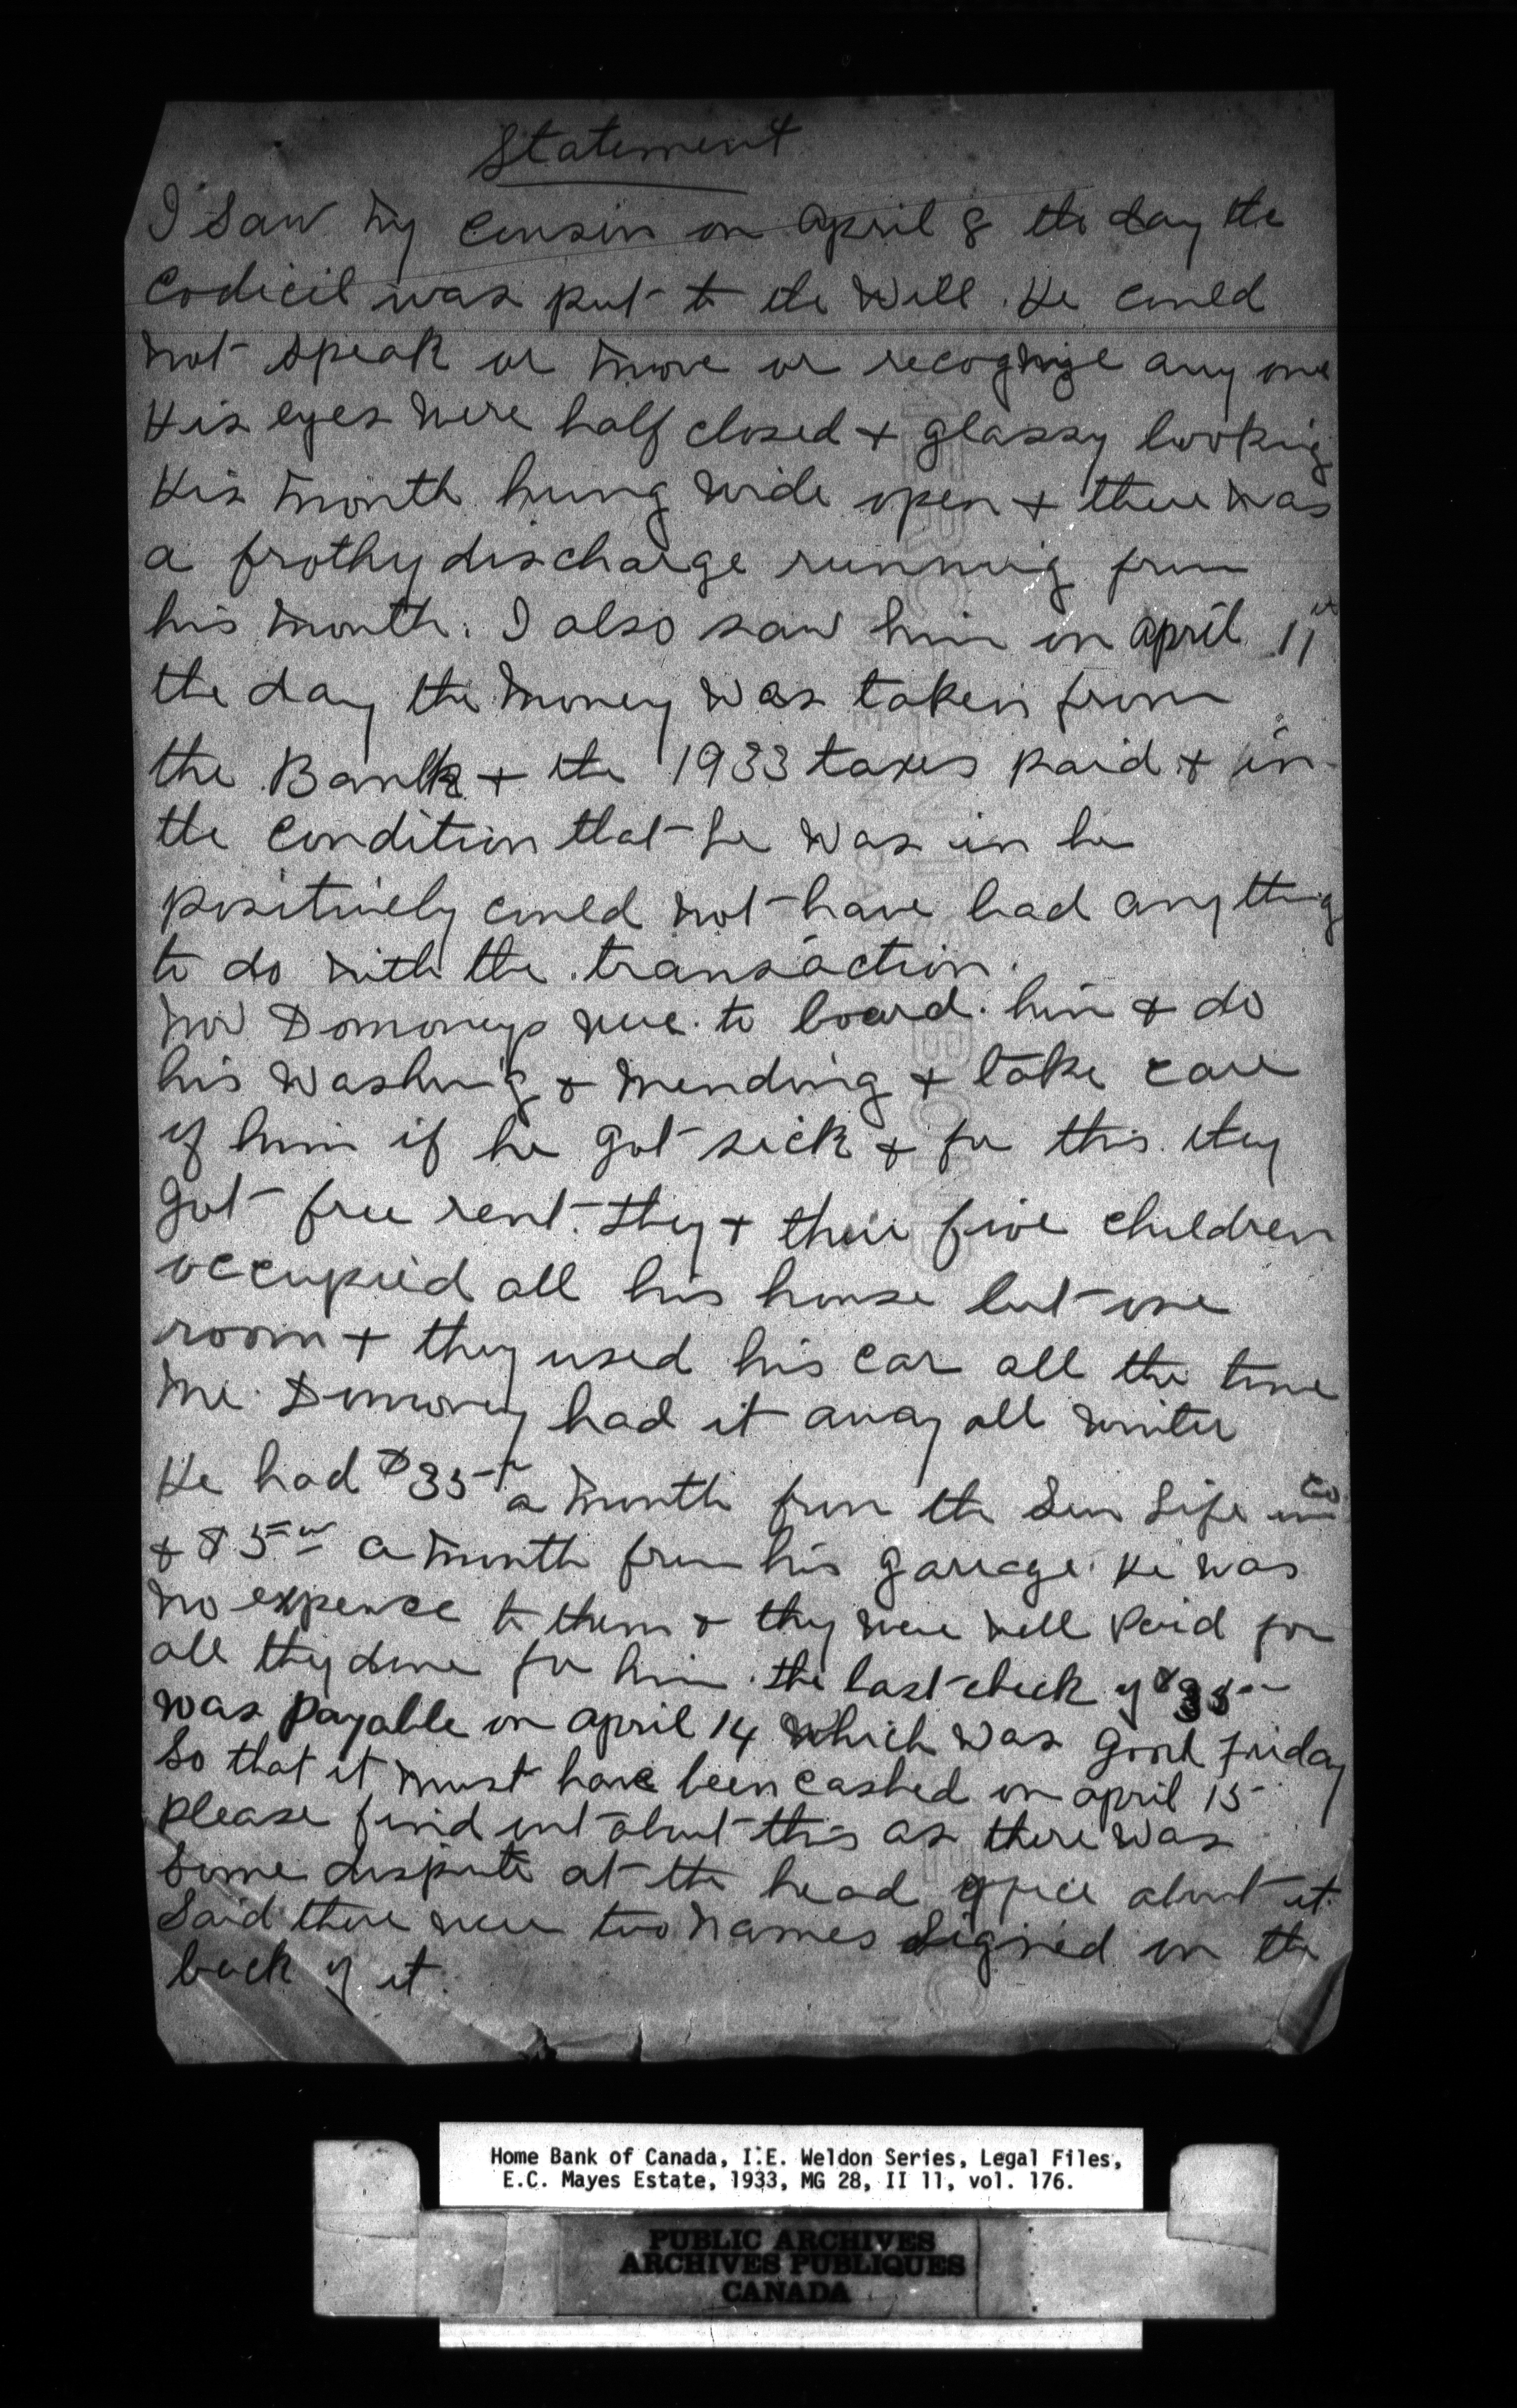 Statement
I saw my cousin on April 8 the day the
Codicil was put to the Will. He could
not speak or move or recognize any one
His eyes were half closed + glassy looking
His mouth hung wide open + there was
a frothy discharge running from
his mouth. I also saw him on April 11th
the day the money was taken from
the Bank + the 1933 taxes paid + in
the condition that he was in he
positively could not have had anything
to do with the transaction.
Now Domoneys were to board him + do
his washing + mending + take care
of him if he got sick + for this they
got free rent. They + their five children
occupied all his house but one
room + they used his car all the time
Mr. Domoney had it away all winter
He had $35 a month from the Sun Life
+ $5 a month from his garage. He was
no expence to them + they were well paid for
all they done for him. the last check of $35
was payable on April 14 which was Good Friday
So that it must have been cashed on April 15
please find out about this as there was
some dispute at the head office about it.
Said there were two names signed on the
back of it.
Home Bank of Canada, I.E. Weldon Series, Legal Files,
E.C. Mayes Estate, 1933, MG 28, II 11, vol. 176.
PUBLIC ARCHIVES
ARCHIVES PUBLIQUES
CANADA